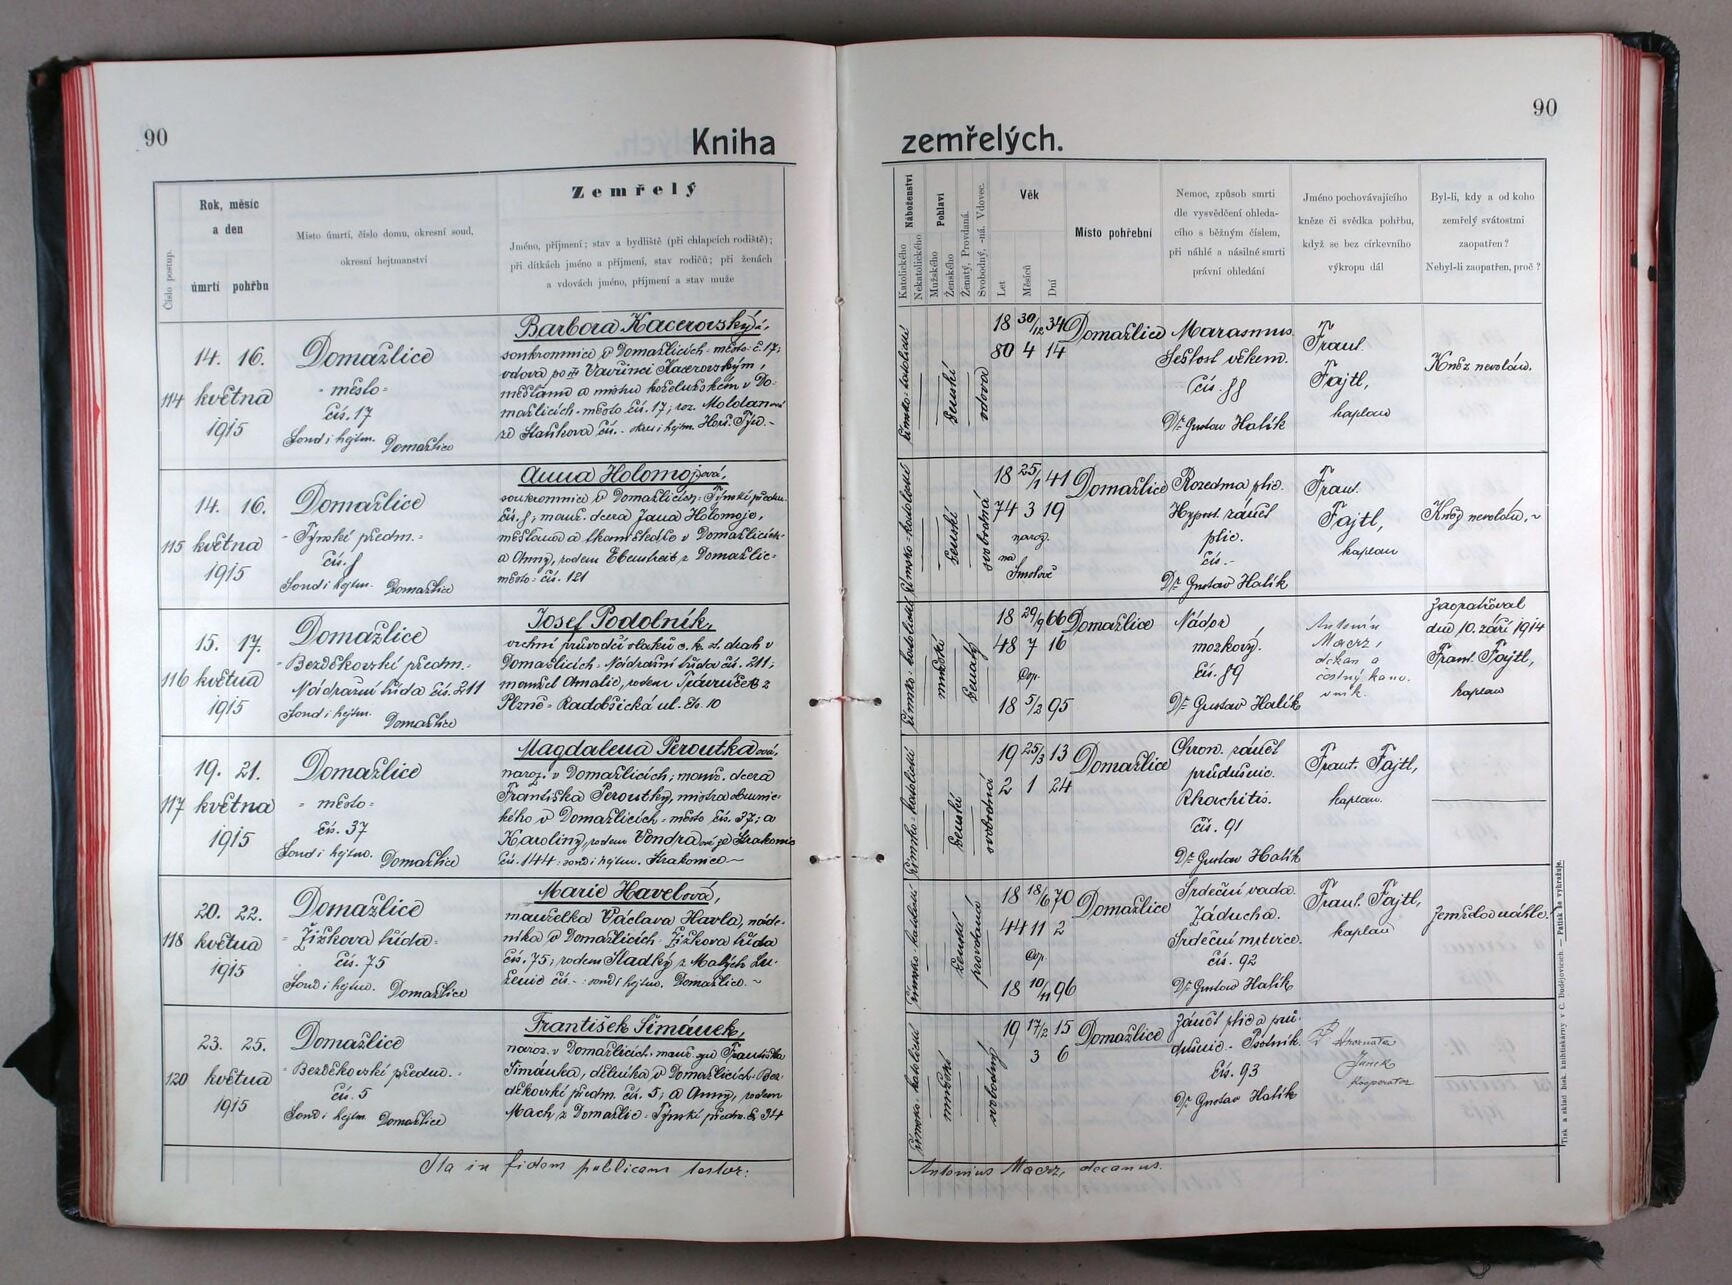 90
Kniha
Číslo postup.
Rok, měsíc
a den
úmrtí pohřbu
Místo úmrtí, číslo domu, okresní soud,
okresní hejtmanství
Zemřelý
Jméno, příjmení; stav a bydliště (při chlapcích rodiště);
při dítkách jméno a příjmení, stav rodičů; při ženách
a vdovách jméno, příjmení a stav muže
114
14. 16.
května
1915
Domažlice
- město =
čís. 17
Soud i hejtm. Domažlice
Barbora Kacerovský,
soukromnice v Domažlicích - město - č. 17;
vdova po Vavřinci Kacerovským,
měšťanu a mistru koželužském v Do-
mažlicích - město čís. 17; roz.
ze Staňkova čís. - okres i hejtm. Horš. Týn. -
115
14. 16.
května
1915
Domažlice
- Týnské předm. =
čís. 8
Soud i hejtm. Domažlice
Anna Holomojová,
soukromnice v Domažlicích - Týnské předm.
čís. 8; manž. dcera Jana Holomoje,
měšťana a v Domažlicích
a Anny, rodem z Domažlic =
město = čís. 121
116
15. 17.
května
1915
Domažlice
- Bezděkovské předm. -
Nádražní třída čís. 211
Soud i hejtm. Domažlice
Josef Podolník,
vrchní průvodčí vlaků c. k. st. drah v
Domažlicích - Nádražní třída čís. 211;
manžel Amalie, rodem z
Plzně = ul. čís. 10
117
19. 21.
května
1915
Domažlice
= město =
čís. 37
Soud i hejtm. Domažlice
Magdalena Peroutkaová,
naroz. v Domažlicích; manž. dcera
Františka Peroutky, mistra obuvnic-
kého v Domažlicích - město čís. 37; a
Karoliny, rodem Vondra ze Strakonic
čís. 144 = soud i hejtm. Strakonice ~
118
20. 22.
května
1915
Domažlice
= Žižkova třída =
čís. 75
Soud i hejtm. Domažlice
Marie Havelová,
manželka Václava Havla,
v Domažlicích - Žižkova třída
čís. 75; rodem Sladký z Malých Lu-
ženic čís. - : soud i hejtm. Domažlice. ~
120
23. 25.
května
1915
Domažlice
- Bezděkovské předm. -
čís. 5
Soud i hejtm. Domažlice
František Šimánek,
naroz. v Domažlicích - manž. syn Františka
Šimánka, dělníka v Domažlicích - Bez-
děkovské předm. čís. 5; a Anny, rodem
Mach, z Domažlic = Týnské předm. čís. 34
Ita in fidem publicam testor:
90
zemřelých.
Katolického
Nekatolického
Náboženství
Mužského
Ženského
Pohlaví
Ženatý, Provdaná.
Svobodný, -ná. Vdovec.
Věk
Let
Měsíců
Dní
Místo pohřební
Nemoc, způsob smrti
dle vysvědčení ohleda-
cího s běžným číslem,
při náhlé a násilné smrti
právní ohledání
Jméno pochovávajícího
kněze či svědka pohřbu,
když se bez církevního
výkropu dál
Byl-li, kdy a od koho
zemřelý svátostmi
zaopatřen?
Nebyl-li zaopatřen, proč?
římsko-katolické
ženské
vdova
18 30/12 34
80 4 14
Domažlice
Marasmus.
Sešlost věkem.
čís. 88
Dr. Gustav Halík
Frant.
Fajtl,
kaplan
Kněz nevolán.
římsko-katolické
ženské
svobodná
18 25/1 41
74 3 19
naroz.
na
Smolově
Domažlice
Rozedma plic.
Hypost. zánět
plic.
čís. -
Dr. Gustav Halík
Frant.
Fajtl,
kaplan
Kněz nevolán. ~
římsko-katolické
mužské
ženatý
18 29/9 66
48 7 16
Cop.
18 5/2 95
Domažlice
Nádor
mozkový.
čís. 89
Dr. Gustav Halík
Antonín
Macrz,
děkan a
čestný kano-
vník.
Zaopatřoval
dne 10. září 1914
Frant. Fajtl,
kaplan
římsko-katolické
ženské
svobodná
19 25/3 13
2 1 24
Domažlice
Chron. zánět
průdušnic.
Rhachitis.
čís. 91
Dr. Gustav Halík
Frant. Fajtl,
kaplan.
římsko-katolické
ženské
provdaná
18 18/6 70
44 11 2
Cop.
18 10/11 96
Domažlice
Srdeční vada.
Záducha.
Srdeční mrtvice.
čís. 92
Dr. Gustav Halík
Frant. Fajtl,
kaplan
Zemřela náhle.
římsko-katolické
mužské
svobodný
19 17/2 15
3 6
Domažlice
Zánět plic a prů-
dušnic - Psotník
čís. 93
Dr. Gustav Halík
Kooperator
Antonius Macrz, decanus.
Tisk a sklad bisk. knihtiskárny v Č. Budějovicích. — Patisk se vyhražuje.